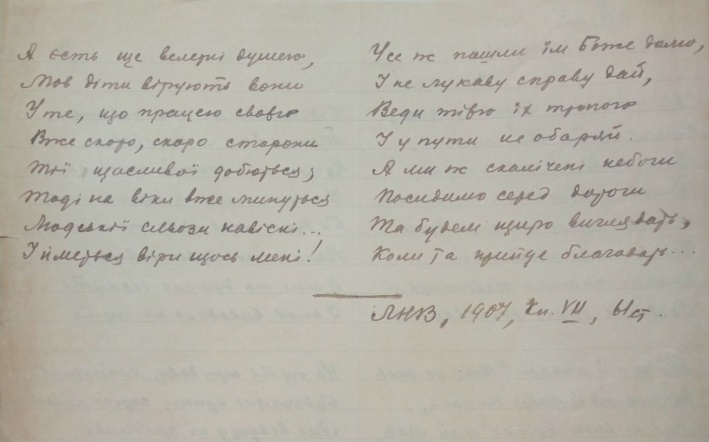 А єсть ще велетні душею,
Мов діти вірують вони
У те, що працею своєю
Вже скоро, скоро сторони
Тії щасливої добються;
Тоді на віки вже минуться
Людськії сльози навісні...
І йметься віри щось мені!
Усе ж пошли їм Боже долю,
І не лукаву справу дай,
Веди тією їх тропою
І у пути не обаряй.
А ми ж скалічені небоги
Посидимо серед дороги
Та будем щиро виглядать,
Коли та прийде благодать...
ЛНВ, 1907, Кн. VII, ст.